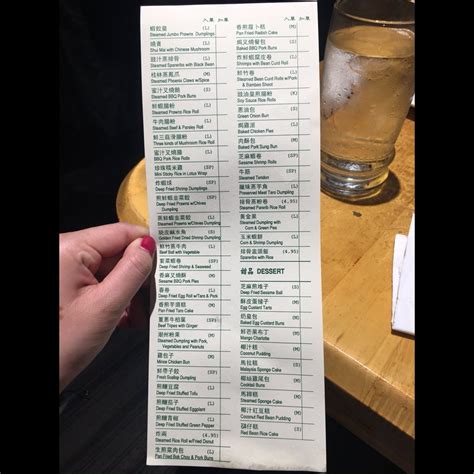 入單 加單
蝦餃皇 (L)
Steamed Jumbo Prawns Dumplings
燒賣 (L)
Shui Mai with Chinese Mushroom
豉汁蒸排骨 (L)
Steamed Spareribs with Black Bean
桂林蒸鳳爪 (M)
Steamed Phoenix Claws w/Spices
蜜汁叉燒飽 (S)
Steamed BBQ Pork Buns
鮮蝦腸粉 (L)
Steamed Prawns Rice Roll
牛肉腸粉 (L)
Steamed Beef & Parsley Roll
鮮三菇滑腸粉 (L)
Three kinds of Mushroom Rice Roll
蜜汁叉燒腸 (M)
BBQ Pork Rice Rolls
珍珠糯米雞 (SP)
Mini Sticky Rice in Lotus Wrap
炸蝦球 (SP)
Deep Fried Shrimp Dumplings
煎鮮蝦韭菜餃 (SP)
Deep Fried Prawns w/Chives Dumpling
鮮蝦韭菜餃 (SP)
Steamed Prawns w/Chives Dumpling
脆皮鹹水角 (S)
Golden Fried Dried Shrimp Dumpling
鮮竹蒸牛肉 (S)
Beef Ball with Vegetable
紫菜蝦卷 (SP)
Deep Fried Shrimp & Seaweed
香麻叉燒酥 (M)
Sesame BBQ Pork Pies
春卷 (L)
Deep Fried Egg Roll w/Taro & Pork
香煎芋頭糕 (M)
Pan Fried Taro Cake
薑蔥牛柏葉 (SP)
Beef Tripes with Ginger
潮州粉果 (M)
Steamed Dumpling with Pork,
Vegetables and Peanuts
雞包仔 (M)
Mince Chicken Bun
鮮帶子餃 (SP)
Fresh Scallop Dumpling
煎釀豆腐 (M)
Deep Fried Stuffed Tofu
煎釀茄子 (L)
Deep Fried Stuffed Eggplant
煎釀青椒 (L)
Deep Fried Stuffed Green Pepper
炸兩 (4.95)
Steamed Rice Roll w/Fried Donut
生煎菜肉包 (L)
Pan Fried Bak Choy & Pork Buns
入單 加單
香煎蘿卜糕 (M)
Pan Fried Radish Cake
焗叉燒包 (M)
Baked BBQ Pork Buns
炸鮮蝦腐皮卷 (L)
Shrimps with Bean Curd Rolls
鮮竹卷 (L)
Steamed Bean Curd Rolls w/Pork & Bamboo Shoot
豉油皇煎腸粉 (K)
Soy Sauce Rice Rolls
蔥油包 (S)
Green Onion Bun
焗雞派 (L)
Baked Chicken Pies
肉酥包 (M)
Baked Pork Sung Bun
芝麻蝦卷 (SP)
Sesame Shrimp Rolls
牛筋 (SP)
Steamed Tendon
釀味蒸芋角 (L)
Steamed Taro Dumpling
排骨蒸粉卷 (4.95)
Steamed Sparerib Rice Roll
黃金菓 (L)
Steamed Dumpling with Corn & Green Pea
玉米蝦餃 (L)
Corn & Shrimp Dumpling
排骨盅頭飯 (4.95)
Spareribs with Rice
甜品 DESSERT
芝麻煎堆子 (M)
Deep Fried Sesame Ball
酥皮蛋撻子 (M)
Egg Custard Tarts
奶皇包 (M)
Baked Egg Custard Buns
鮮芒果布丁 (M)
Mango Charlotte
椰汁糕 (M)
Coconut Pudding
馬拉糕 (M)
Malaysia Sponge Cake
椰絲雞尾包 (M)
Cocktail Buns
馬蹄糕 (M)
Steamed Sponge Cake
椰汁紅豆糕 (M)
Coconut Red Bean Pudding
砵仔糕 (M)
Red Bean Rice Cake